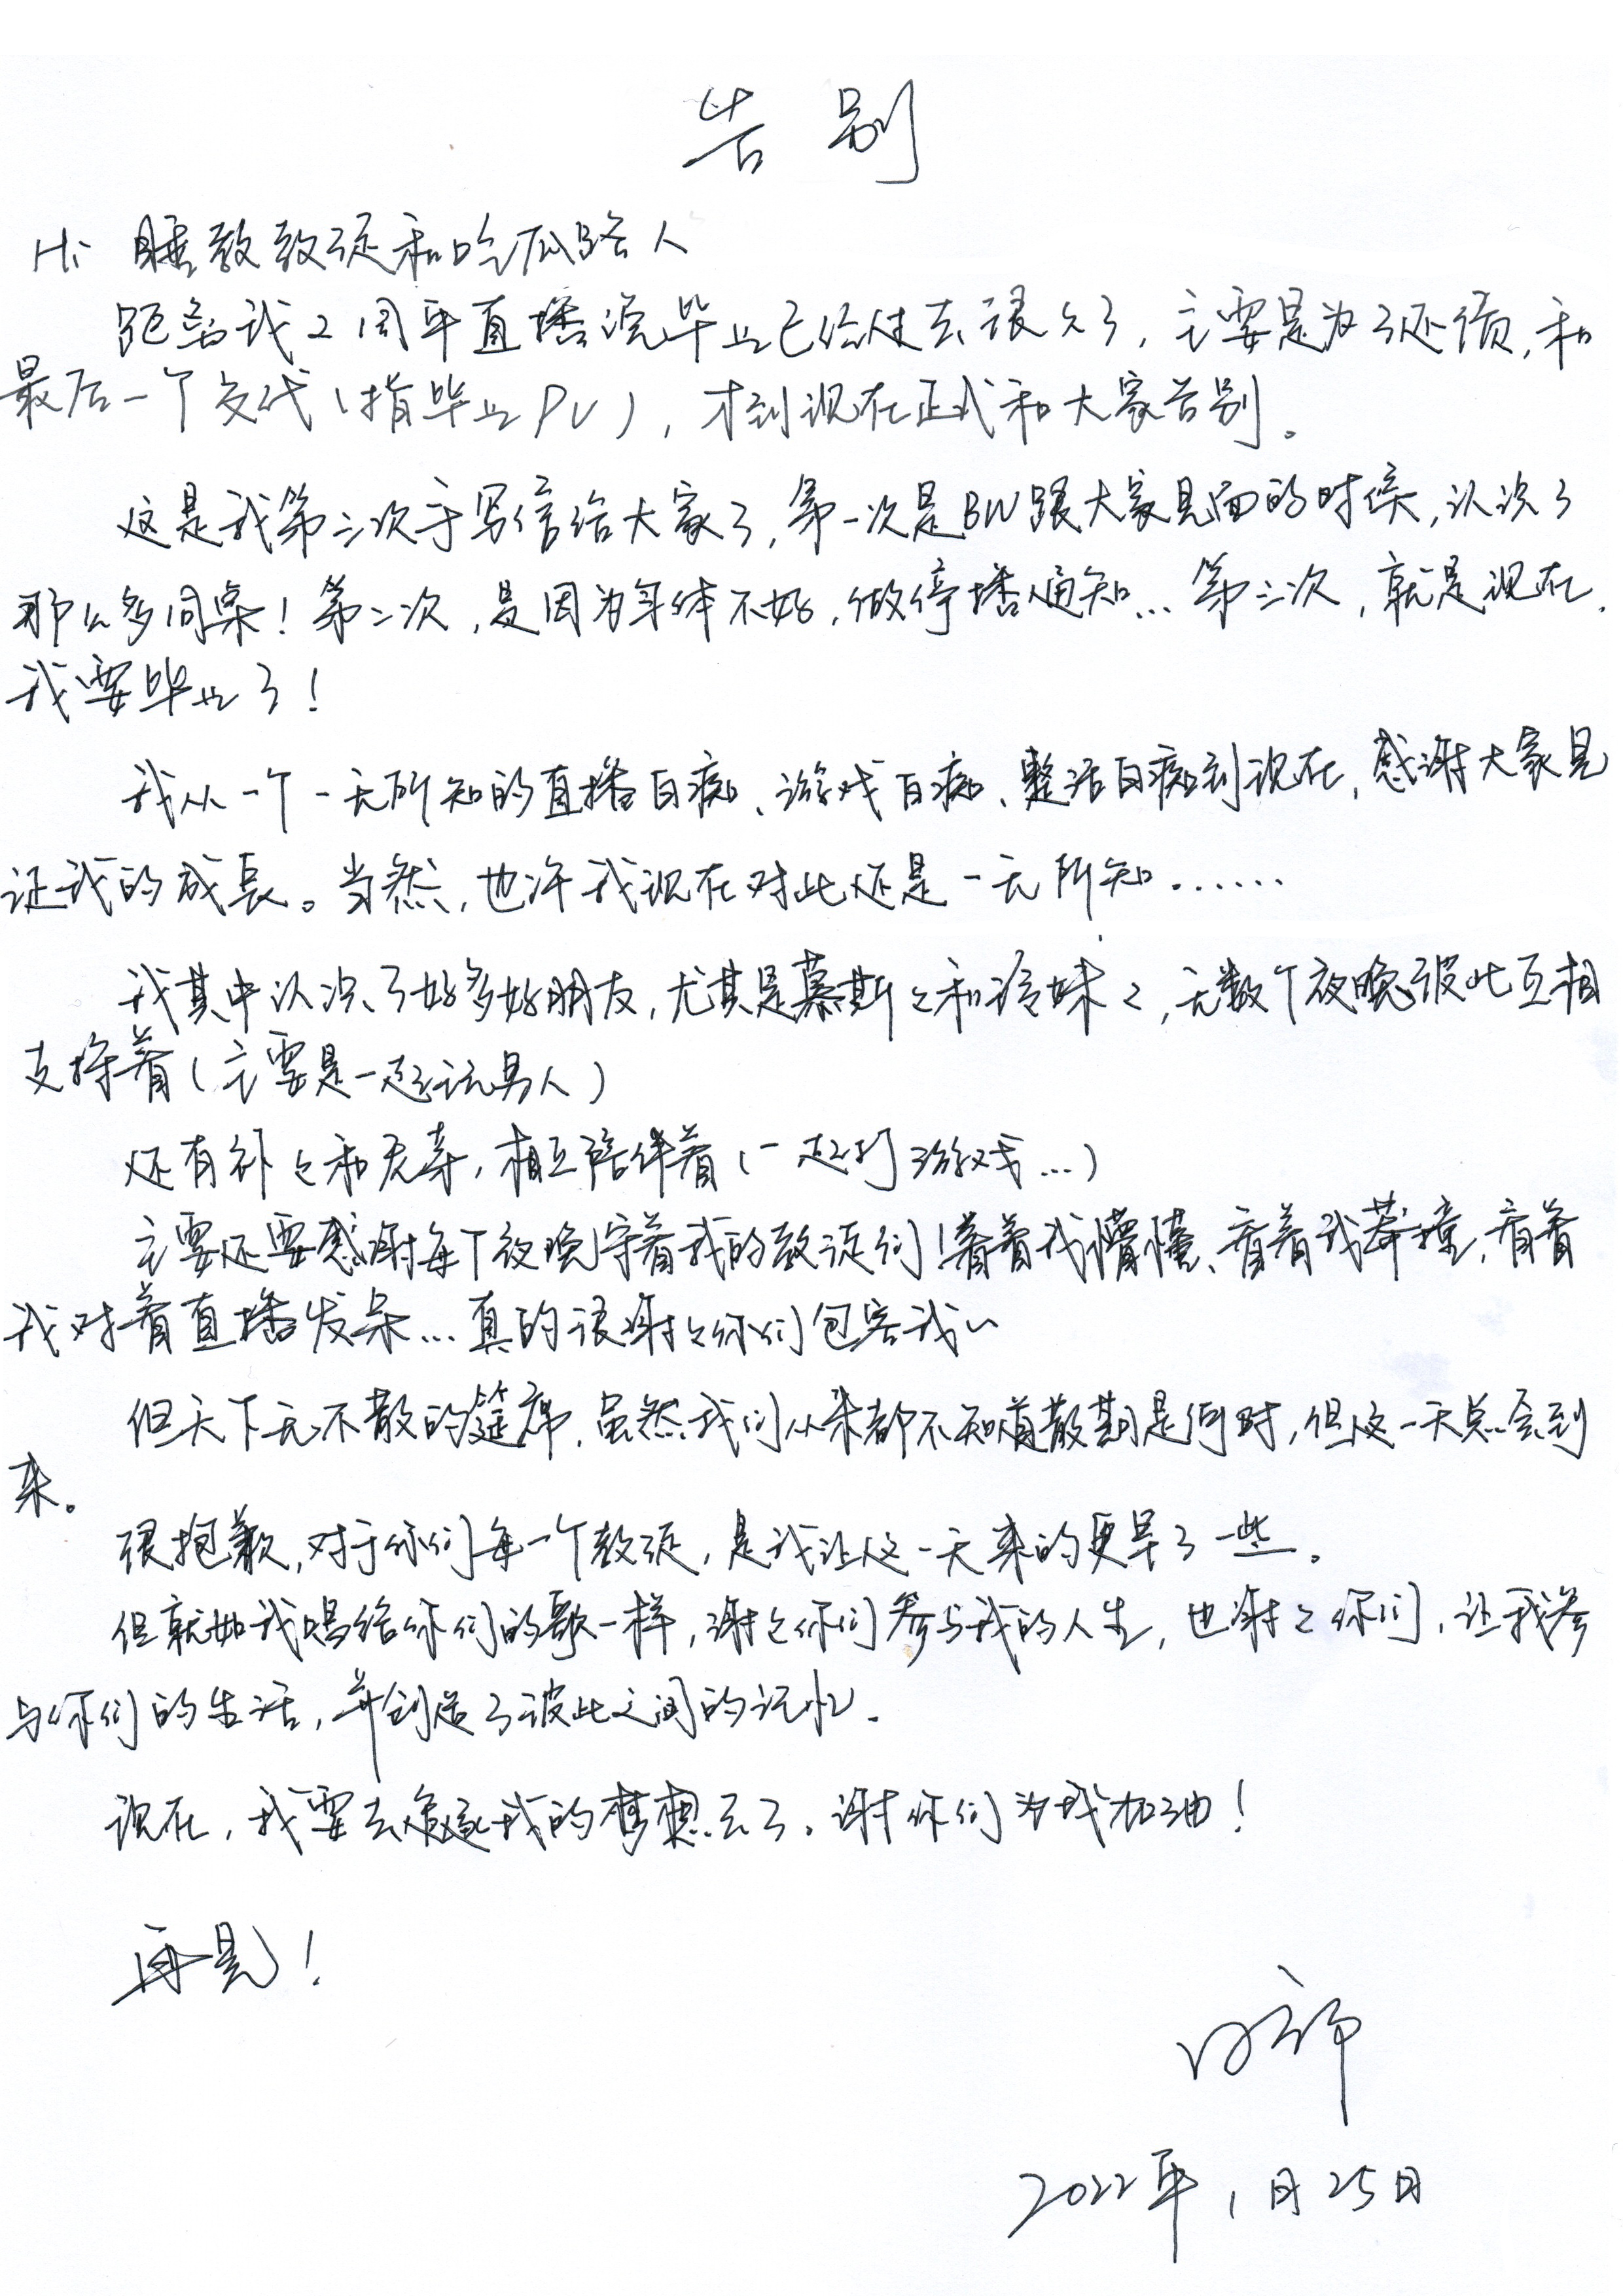 告别
Hi 睡教教徒和吃瓜路人
距离我2周年直播说毕业已经过去很久了，主要是为了还债，和
最后一个交代（指毕业PV），才到现在正式和大家告别。
这是我第三次手写信给大家了，第一次是BW跟大家见面的时候，认识了
那么多同桌！第二次，是因为身体不好，做停播通知...第三次，就是现在，
我要毕业了！
我从一个一无所知的直播白痴、游戏白痴、整活白痴到现在，感谢大家见
证我的成长。当然，也许我现在对此还是一无所知......
我其中认识了好多好朋友，尤其是慕斯々和冷妹々，无数个夜晚彼此互相
支持着（主要是一起玩男人）
还有补々和无寿，相互陪伴着（一起打游戏...）
主要还要感谢每个夜晚守着我的教徒们！看着我懵懂、看着我莽撞，看着
我对着直播发呆...真的很谢々你们包容我~
但天下无不散的筵席，虽然我们从来都不知道散期是何时，但这一天总会到
来。
很抱歉，对于你们每一个教徒，是我让这一天来的更早了一些。
但就如我唱给你们的歌一样，谢々你们参与我的人生，也谢々你们，让我参
与你们的生活，并创造了彼此之间的记忆。
现在，我要去追逐我的梦想去了。谢你们为我加油！
再见！
2022年1月25日